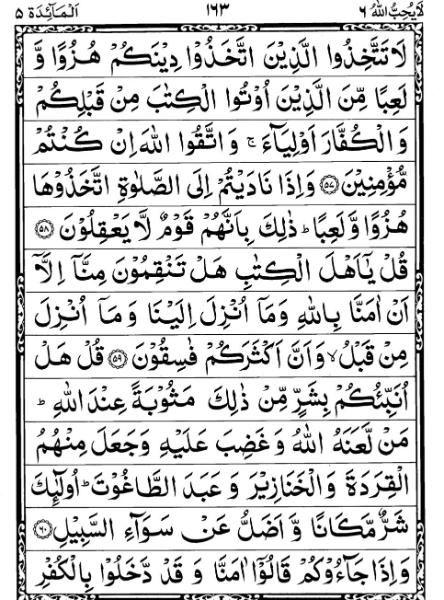 لَا يُحِبُّ اللهُ ٦ ١٦٣ اَلْمَآئِدَة ٥
لَا تَتَّخِذُوا الَّذِيْنَ اتَّخَذُوْا دِيْنَكُمْ هُزُوًا وَّ
لَعِبًا مِّنَ الَّذِيْنَ اُوْتُوا الْكِتٰبَ مِنْ قَبْلِكُمْ
وَ الْكُفَّارَ اَوْلِيَآءَ ۚ وَ اتَّقُوا اللهَ اِنْ كُنْتُمْ
مُّؤْمِنِيْنَ ﴿٥٧﴾ وَ اِذَا نَادَيْتُمْ اِلَى الصَّلٰوةِ اتَّخَذُوْهَا
هُزُوًا وَّ لَعِبًا ؕ ذٰلِكَ بِاَنَّهُمْ قَوْمٌ لَّا يَعْقِلُوْنَ ﴿٥٨﴾
قُلْ يٰۤاَهْلَ الْكِتٰبِ هَلْ تَنْقِمُوْنَ مِنَّاۤ اِلَّاۤ
اَنْ اٰمَنَّا بِاللهِ وَمَاۤ اُنْزِلَ اِلَيْنَا وَ مَاۤ اُنْزِلَ
مِنْ قَبْلُ ۙ وَ اَنَّ اَكْثَرَكُمْ فٰسِقُوْنَ ﴿٥٩﴾ قُلْ هَلْ
اُنَبِّئُكُمْ بِشَرٍّ مِّنْ ذٰلِكَ مَثُوْبَةً عِنْدَ اللهِ ؕ
مَنْ لَّعَنَهُ اللهُ وَ غَضِبَ عَلَيْهِ وَ جَعَلَ مِنْهُمُ
الْقِرَدَةَ وَ الْخَنَازِيْرَ وَ عَبَدَ الطَّاغُوْتَ ؕ اُولٰٓئِكَ
شَرٌّ مَّكَانًا وَّ اَضَلُّ عَنْ سَوَآءِ السَّبِيْلِ ﴿٦٠﴾
وَ اِذَا جَآءُوْكُمْ قَالُوْۤا اٰمَنَّا وَ قَدْ دَّخَلُوْا بِالْكُفْرِ